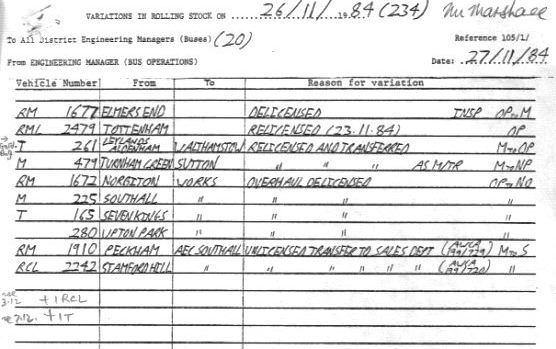 VARIATIONS IN ROLLING STOCK ON 26/11/1984 (234) Mr Marshall
To All District Engineering Managers (Buses) (20) Reference 105/1/
From ENGINEERING MANAGER (BUS OPERATIONS) Date: 27/11/84
Vehicle Number From To Reason for variation
RM 1677 ELMERS END DELICENSED INSP OP to M
RML 2479 TOTTENHAM RELICENSED (23.11.84) OP
T 261 LEYLANDS ALDENHAM WALTHAMSTOW RELICENSED AND TRANSFERRED M to OP
M 479 TURNHAM GREEN SUTTON " " " AS M/TR M to NP
RM 1672 NORBITON WORKS OVERHAUL DELICENSED OP to NO
M 225 SOUTHALL " " "
T 165 SEVEN KINGS " " "
280 UPTON PARK " " "
RM 1910 PECKHAM AEC SOUTHALL UNLICENSED TRANSFER TO SALES DEPT (AWCA 199/729) M to S
RCL 2242 STAMFORD HILL " " " " " " (AWCA 199/720) "
3.12 +1 RCL
3.12. +1T